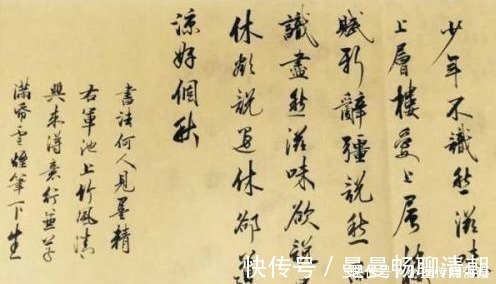 少年不識愁滋味
上層樓愛上層樓
賦新辭彊說愁
識盡愁滋味欲說
休欲說還休郤道
涼好個秋
書法何人見墨精
右軍池上竹風清
興來得意行並草
滿帋雲煙筆下生
快传号 / 曼曼畅聊清朝